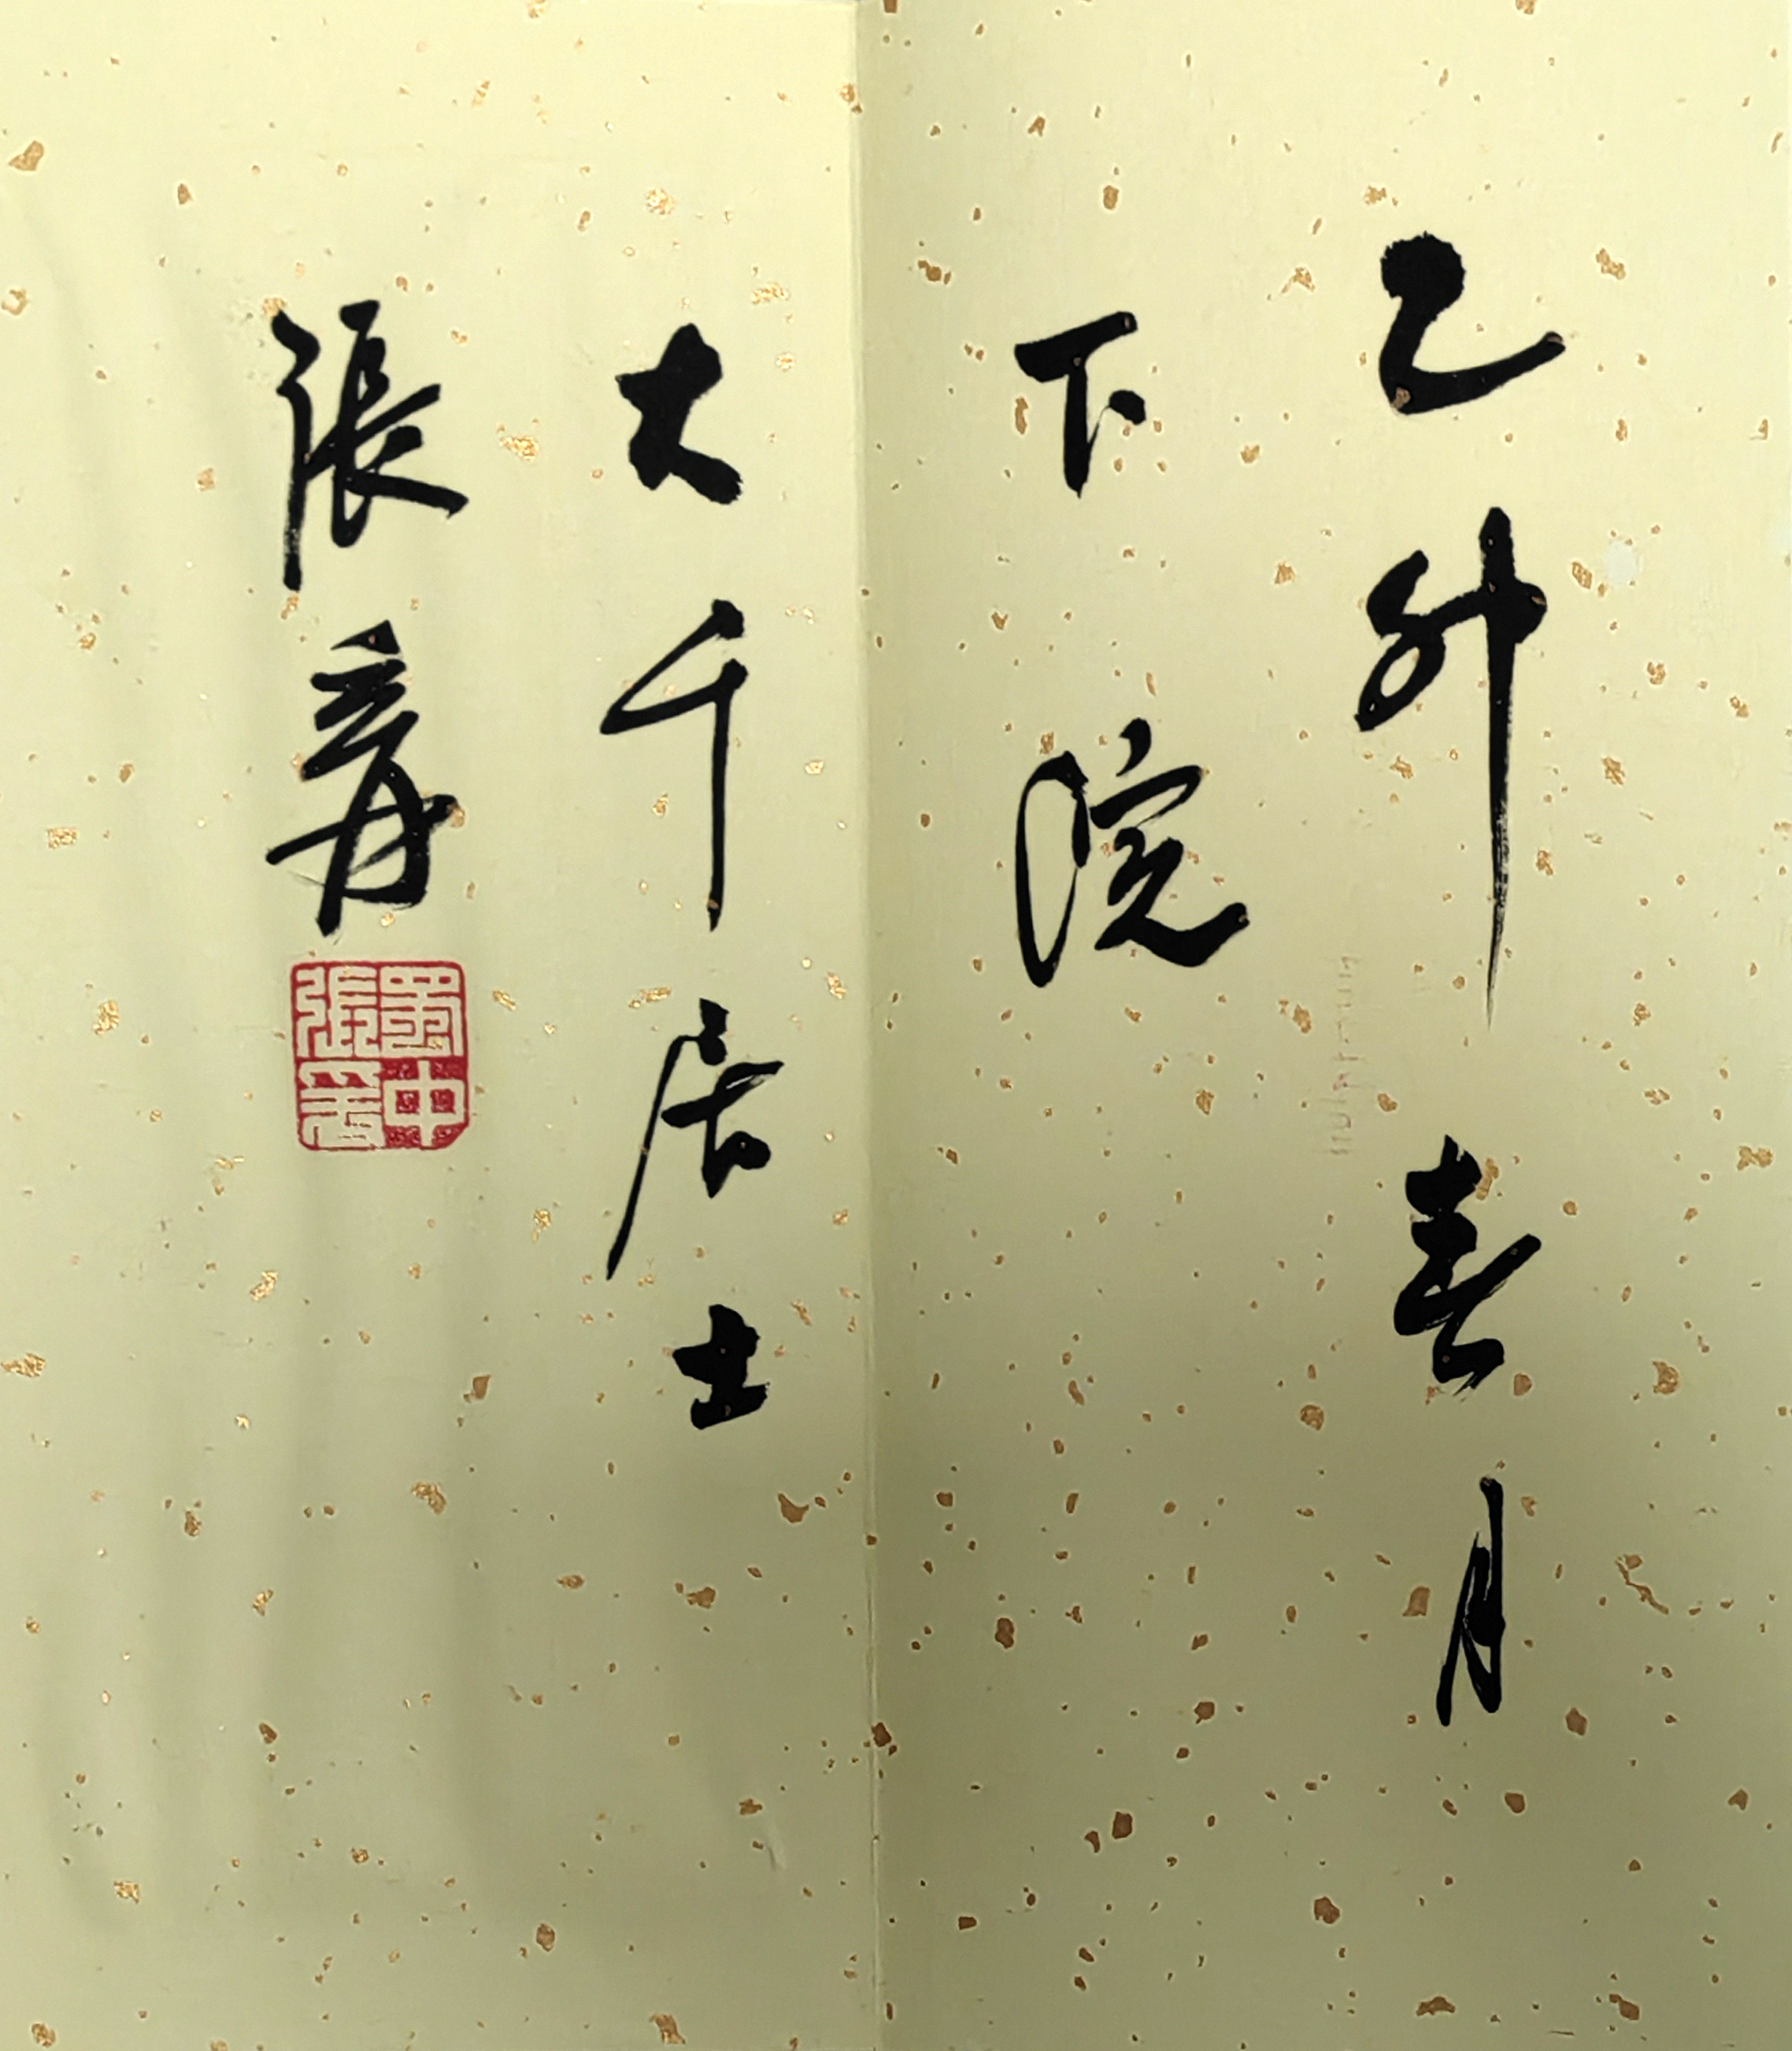 乙卯春月
下浣
大千居士
張爰
蜀中張爰